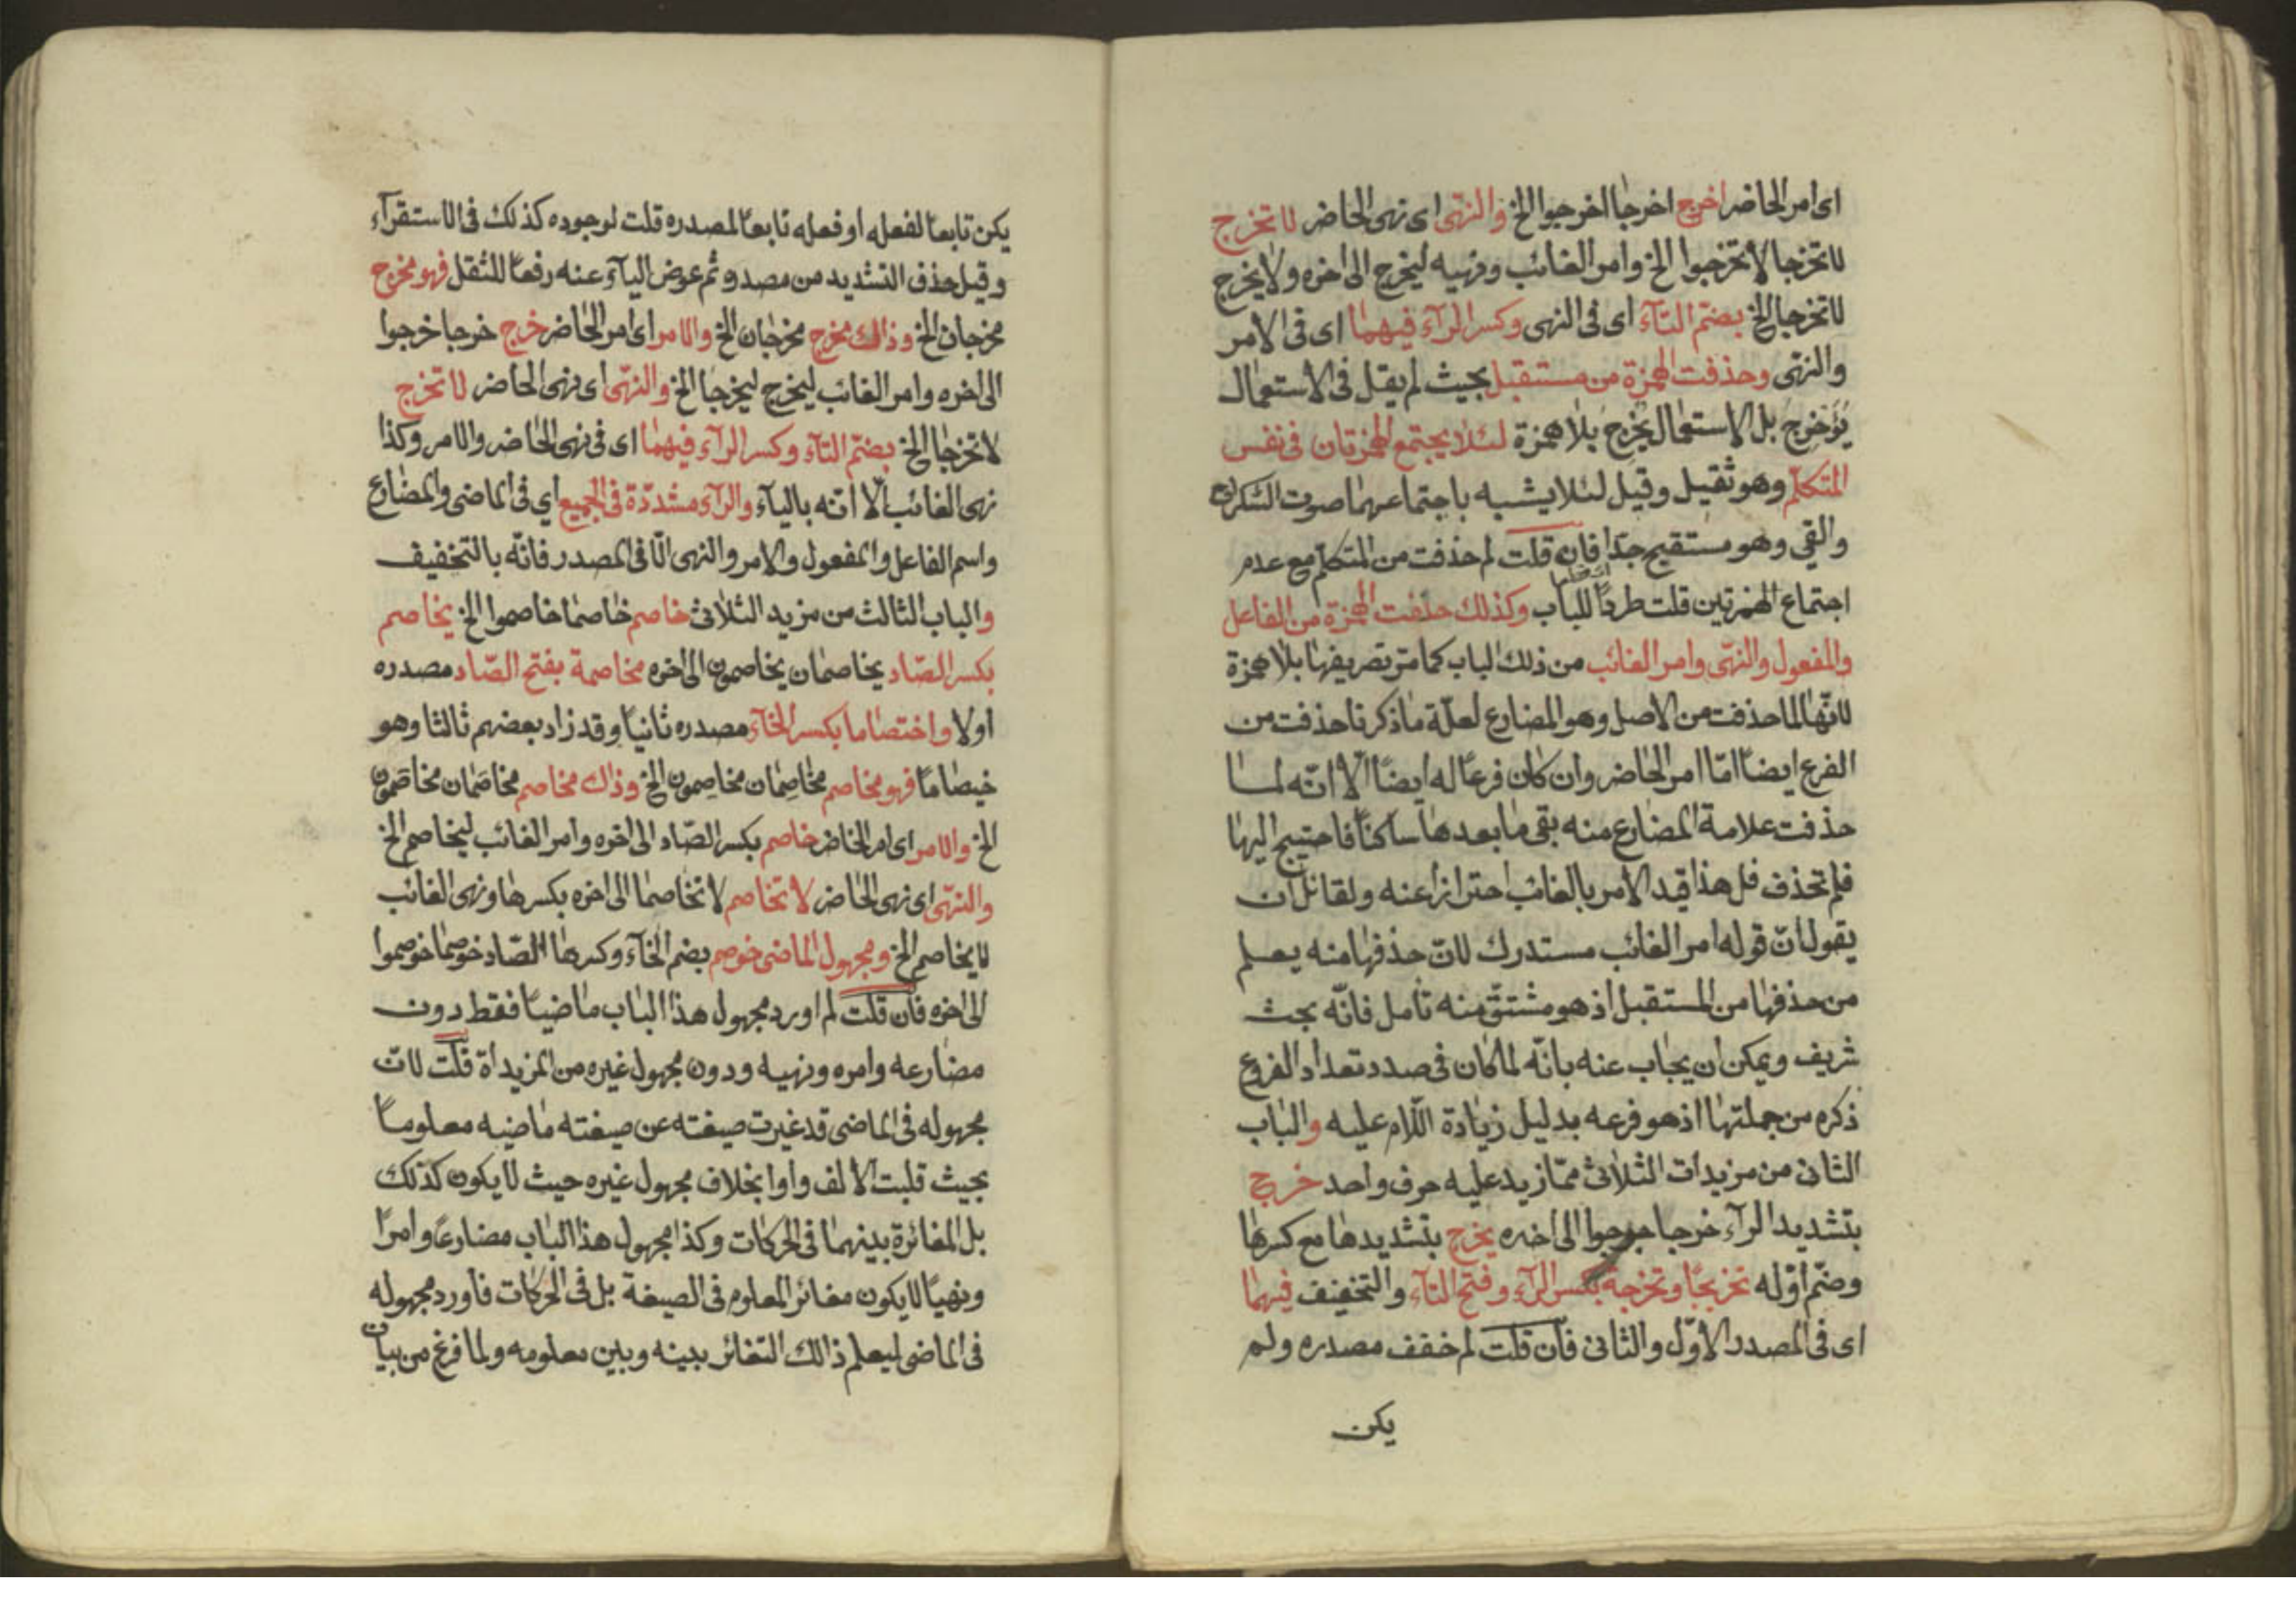 اى امر الحاضر اخرج اخرجا اخرجوا الخ والنهى اى نهى الحاضر لا تخرج
لا تخرجا لا تخرجوا الخ وامر الغائب ونهيه ليخرج الى اخره ولا يخرج
لا تخرجا الخ بضم التآء اى فى النهى وكسر الرآء فيهما اى فى الامر
والنهى وحذفت الهمزة من مستقبل بحيث لم يقل فى الاستعمال
يُؤَخرِج بل الاستعمال يُخْرِجُ بلا همزة لئلا يجتمع الهمزتان فى نفس
المتكلم وهو ثقيل وقيل لئلا يشبه باجتماعهما صوت السكران
والقى وهو مستقبح جدا فان قلت لم حذفت من المتكلم مع عدم
اجتماع الهمزتين قلت طردًا للباب وكذلك حذفت الهمزة من الفاعل
والمفعول والنهى وامر الغائب من ذلك الباب كما مرّ تصريفها بلا همزة
لانّها لما حذفت من الاصل وهو المضارع لعلّة ما ذكرنا حذفت من
الفرع ايضًا امّا امر الحاضر وان كان فرعًا له ايضًا الّا انّه لما
حذفت علامة المضارع منه بقى ما بعدها ساكنًا فاحتيج اليها
فلم تحذف فل هذا قيد الامر بالغائب احترازا عنه ولقائل ان
يقول انّ قوله امر الغائب مستدرك لانّ حذفها منه يعلم
من حذفها من المستقبل اذ هو مشتقّ منه تأمل فانّه بحث
شريف ويمكن ان يجاب عنه بانّه لما كان فى صدد تعداد الفروع
ذكره من جملتها اذ هو فرعه بدليل زيادة اللّام عليه والباب
الثانى من مزيدات الثلاثى ممّا زيد عليه حرف واحد خرج
بتشديد الرآء خرجا خرجوا الى اخره يخرج بتشديدها مع كسرها
وضمّ اوّله تخريجًا وتخرجة بكسر الرآء وفتح التآء والتخفيف فيهما
اى فى المصدر الاوّل والثانى فان قلت لم خفف مصدره ولم
يكن
يكن تابعا لفعله او فعله تابعًا لمصدره قلت لوجوده كذلك فى الاستقرآء
وقيل حذف التشديد من مصدره ثم عوض اليآء عنه رفعًا للثقل فهو مخرج
مخرجان الخ وذاك مخرج مخرجان الخ والامر اى امر الحاضر خرج خرجا خرجوا
الى اخره وامر الغائب ليخرج ليخرجا الخ والنهى اى نهى الحاضر لا تخرج
لا تخرجا الخ بضم التآء وكسر الرآء فيهما اى فى نهى الحاضر والامر وكذا
نهى الغائب الّا انّه باليآء والرآء مشدّدة فى الجميع اي فى الماضى والمضارع
واسم الفاعل والمفعول والامر والنهى الّا فى المصدر فانّه بالتخفيف
والباب الثالث من مزيد الثلاثى خاصم خاصما خاصموا الخ يخاصم
بكسر الصّاد يخاصمان يخاصمون الى اخره مخاصمة بفتح الصّاد مصدره
اولا واختصاما بكسر الخآء مصدره ثانيا وقد زاد بعضهم ثالثا وهو
خيصامًا فهو مخاصم مخاصِمان مخاصِمون الخ وذاك مخاصم مخاصَمان مخاصَمون
الخ والامر اى امر الحاضر خاصم بكسر الصّاد الى اخره وامر الغائب ليخاصم الخ
والنهى اى نهى الحاضر لا تخاصم لا تخاصما الى اخره بكسرها ونهى الغائب
لا يخاصم الخ ومجهول الماضى خوصم بضم الخآء وكسرها الصّاد خوصما خوصموا
الى اخره فان قلت لم اورد مجهول هذا الباب ماضيًا فقط دون
مضارعه وامره ونهيه ودون مجهول غيره من المزيداة قلت لانّ
مجهوله فى الماضى قد غيرت صيغته عن صيغته ماضيه معلومًا
بحيث قلبت الالف واوا بخلاف مجهول غيره حيث لا يكون كذلك
بل المغائرة بينهما فى الحركات وكذا مجهول هذا الباب مضارعًا وامرًا
ونهيًا لا يكون مغائر المعلوم فى الصيغة بل فى الحركات فاورد مجهوله
فى الماضى ليعلم ذالك التغائر بينه وبين معلومه ولما فرغ من بيان